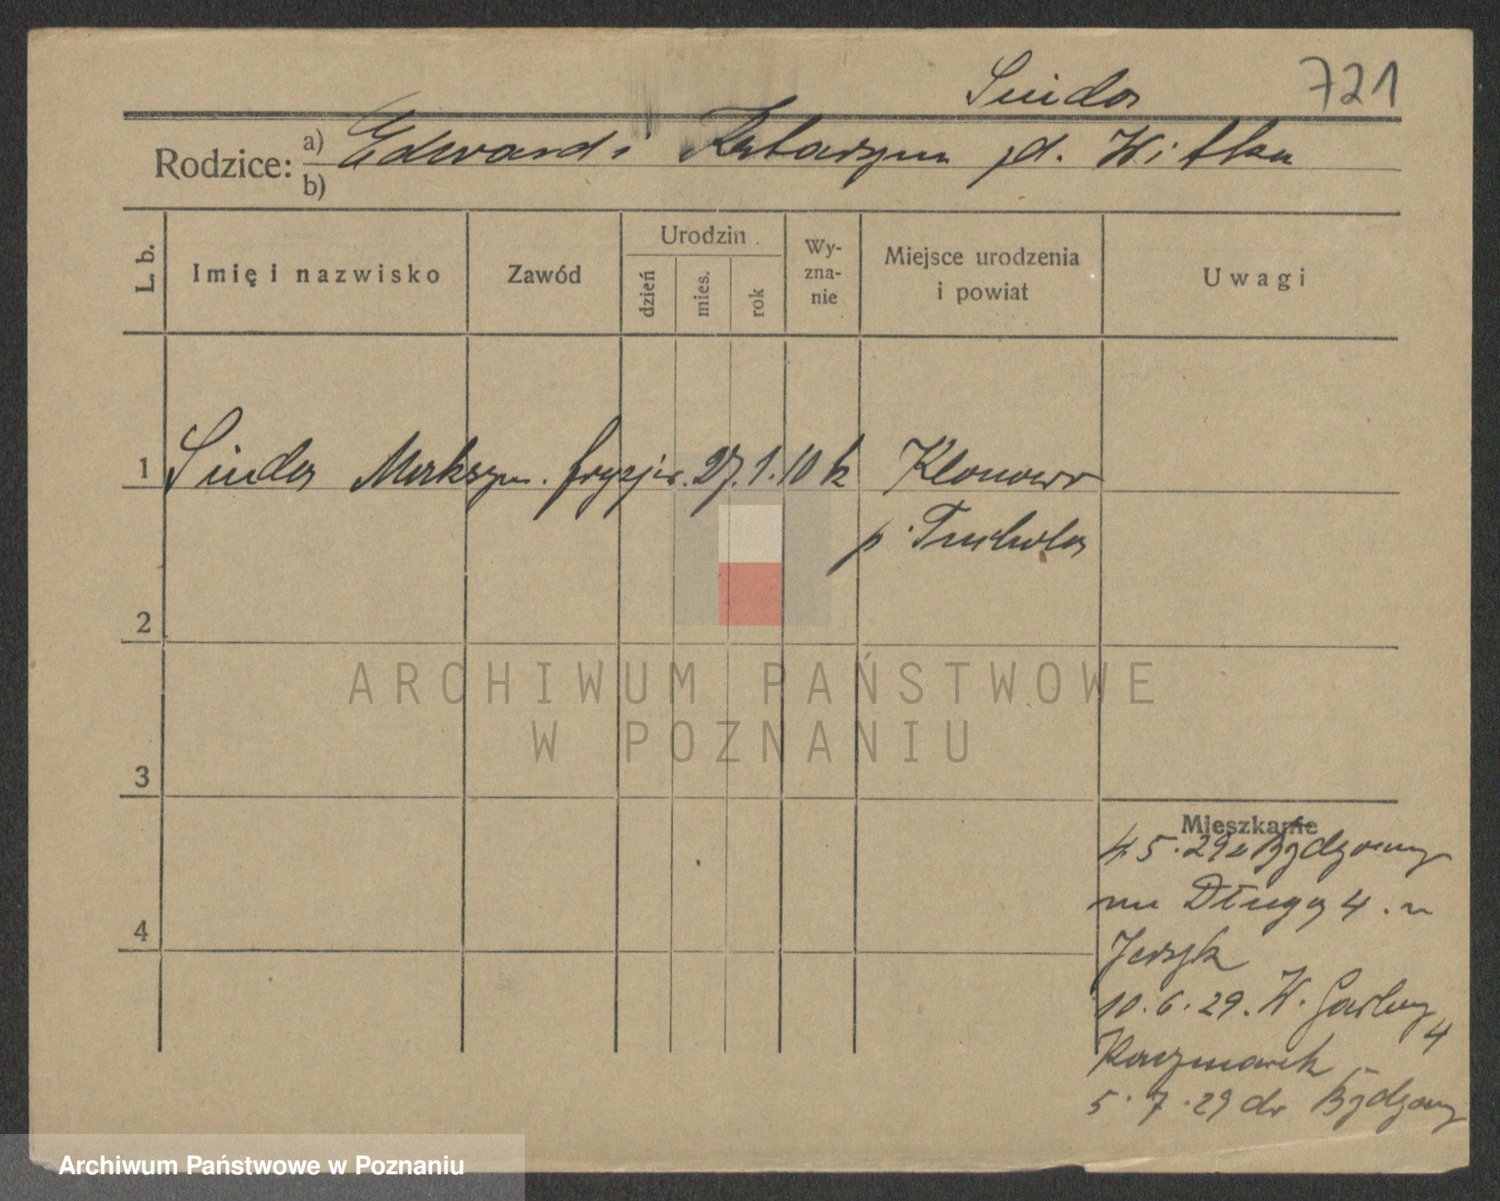 Sinda 721
Rodzice: a) Edward i Katarzyna d. Witka
b)
L. b. Imię i nazwisko Zawód Urodzin dzień mies. rok Wy-zna-nie Miejsce urodzenia i powiat Uwagi
1 Sinda Maksym. fryzjer. 27. 1. 10 k Klonowo
p. Tuchola
2
ARCHIWUM PAŃSTWOWE
W POZNANIU
3
Mieszkanie
4.5.29 z Bydgoszczy
na Długą 4. u
4
Jerzyk
10.6.29. W. Garbary 4
Kaczmarek
5.7.29 do Bydgoszczy
Archiwum Państwowe w Poznaniu